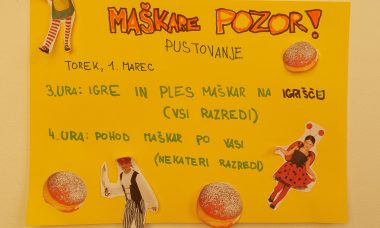 MAŠKARE POZOR!
PUSTOVANJE
TOREK, 1. MAREC
3. URA: IGRE IN PLES MAŠKAR NA IGRIŠČU
(VSI RAZREDI)
4. URA: POHOD MAŠKAR PO VASI
(NEKATERI RAZREDI)